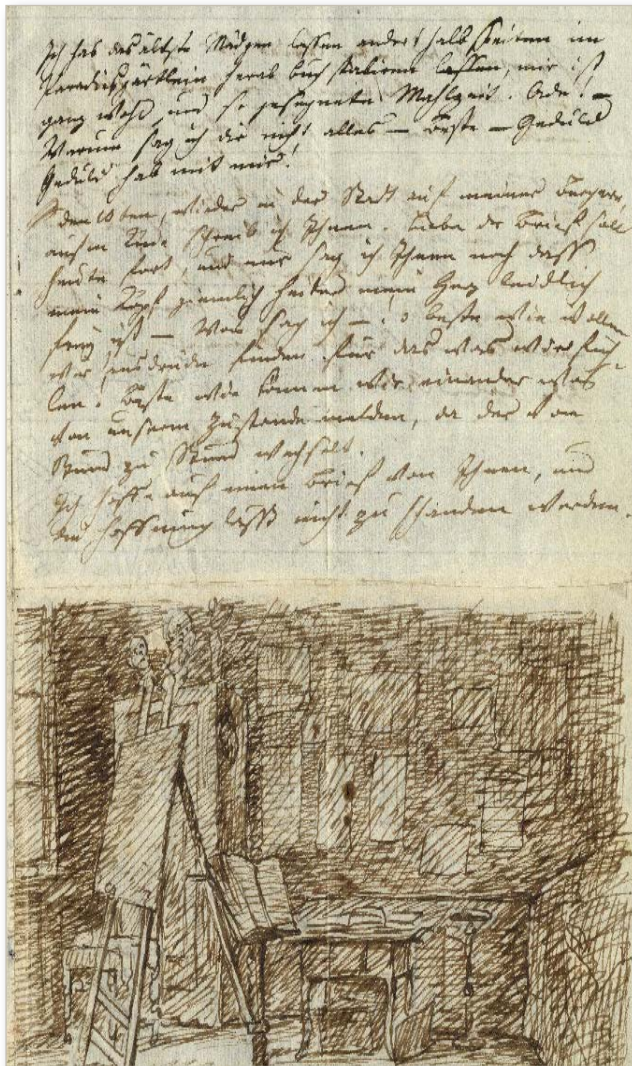 Ich hab das ältste Mädgen lassen anderthalb Seiten im
Paradiesgärtlein herab buchstabiren lassen, mir ist
ganz wohl, und so gesegnete Mahlzeit. Ade! —
Warum sag ich dir nicht alles — Beste — Geduld
Geduld hab mit mir!
den 10ten, wieder in der Stadt auf meiner Bergere,
aufm Knie schreib ich Ihnen. Liebe der Brief soll
heute fort, und nur sag ich Ihnen noch dass
mein Kopf ziemlich heiter mein Herz leidlich
frey ist — Was sag ich —! o beste wie wollen
wir Ausdrücke finden für das was wir füh-
len! Beste wie können wir einander was
von unserm Zustande melden, da der von
Stund zu Stund wechselt.
Ich hoffe auf einen Brief von Ihnen, und
die Hoffnung lässt nicht zu schanden werden.